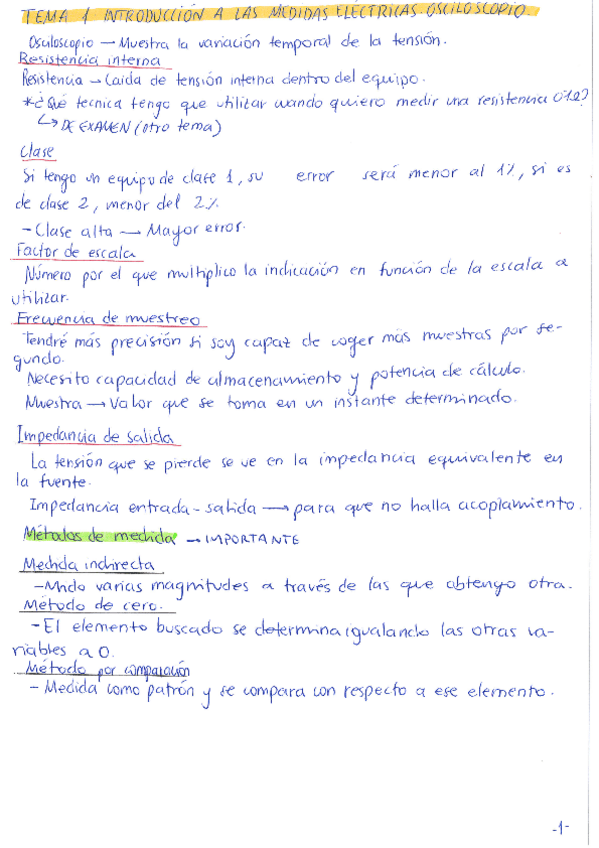 TEMA 1 INTRODUCCIÓN A LAS MEDIDAS ELÉCTRICAS OSCILOSCOPIO.
Osciloscopio → Muestra la variación temporal de la tensión.
Resistencia interna
Resistencia → Caida de tensión interna dentro del equipo.
*¿Qué tecnica tengo que utilizar cuando quiero medir una resistencia 0'1Ω?
↳ DE EXAMEN (otro tema)
Clase
Si tengo un equipo de clase 1, su error será menor al 1%, si es
de clase 2, menor del 2%.
- Clase alta → Mayor error.
Factor de escala
Número por el que multiplico la indicación en función de la escala a
utilizar.
Frecuencia de muestreo
Tendré más precisión si soy capaz de coger más muestras por se-
gundo.
Necesito capacidad de almacenamiento y potencia de cálculo.
Muestra → Valor que se toma en un instante determinado.
Impedancia de salida
La tensión que se pierde se ve en la impedancia equivalente en
la fuente.
Impedancia entrada-salida → para que no halla acoplamiento.
Métodos de medida → IMPORTANTE
Medida indirecta
- Mido varias magnitudes a través de las que obtengo otra.
Método de cero.
- El elemento buscado se determina igualando las otras va-
riables a 0.
Método por comparación
- Medida como patrón y se compara con respecto a ese elemento.
-1-